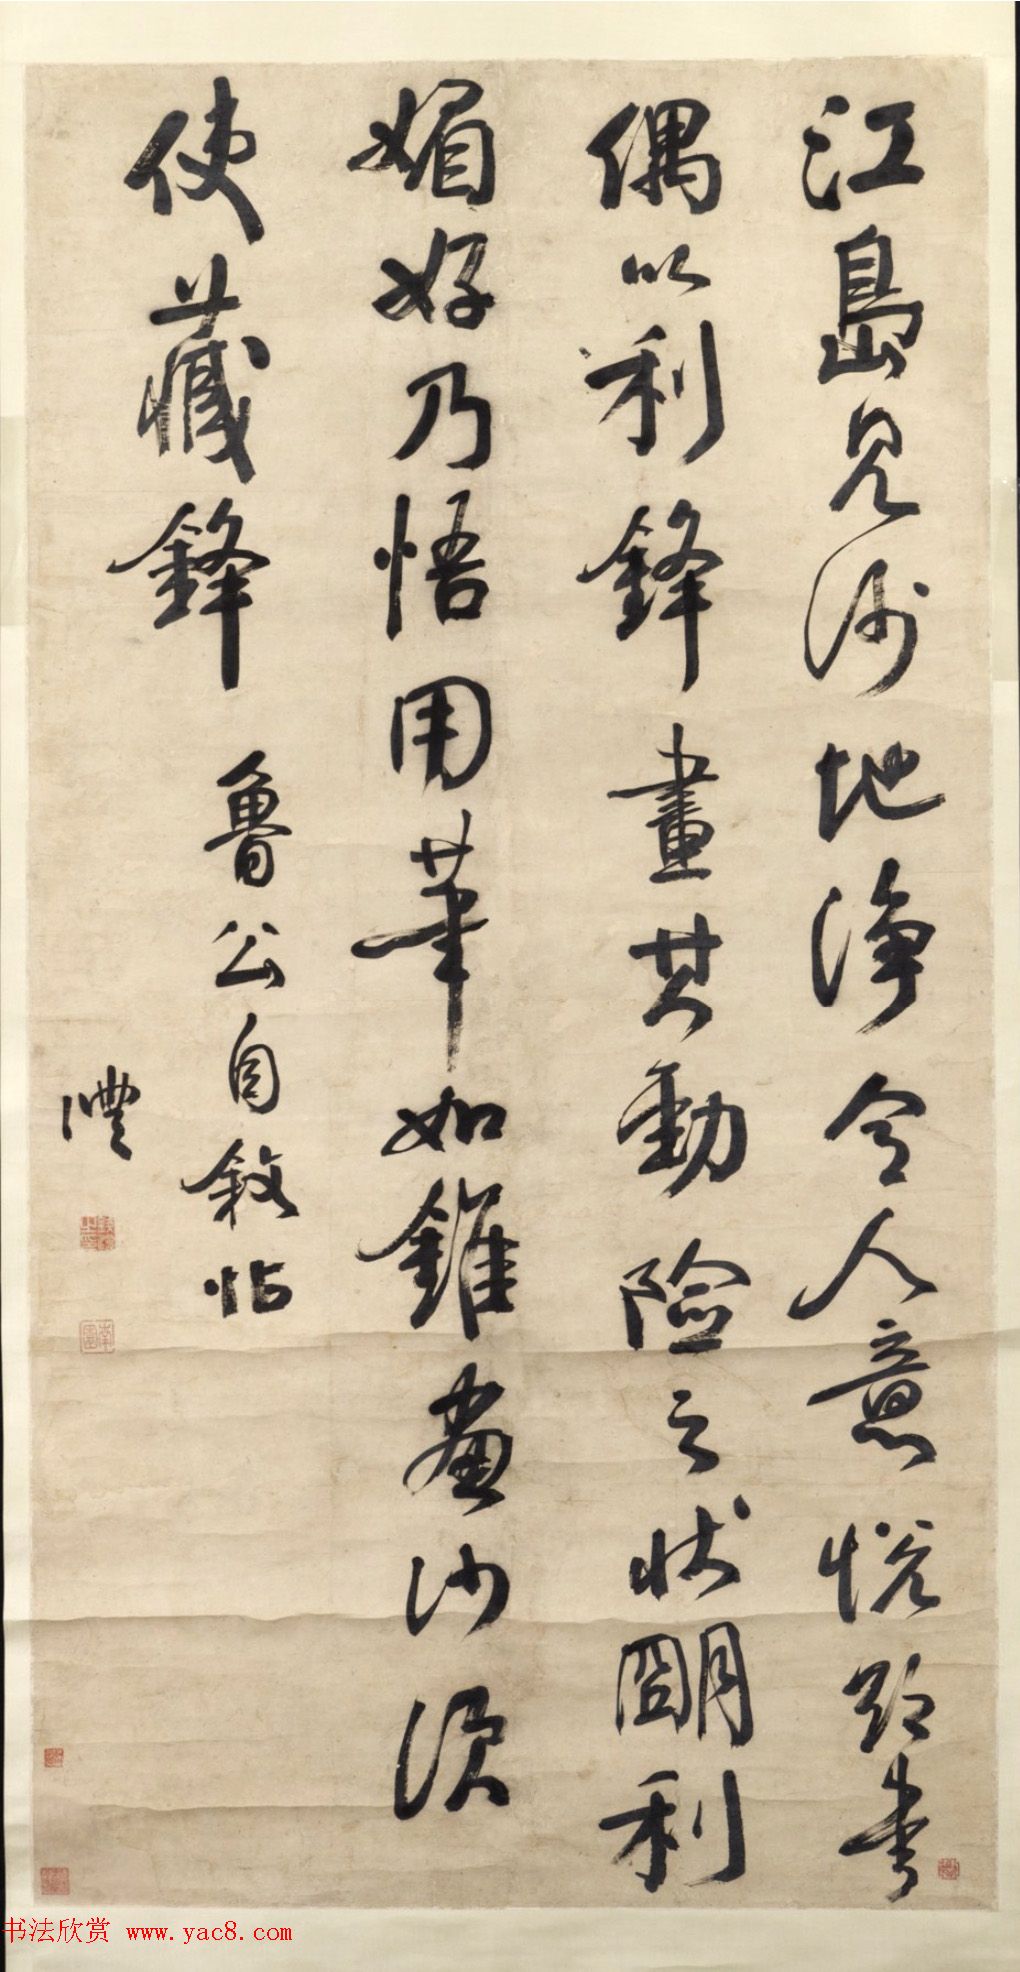 江島見沙地淨令人意悅欲書
偶以利鋒畫其動險之狀朙利
媚好乃悟用筆如錐畫沙須
使藏鋒
魯公自敘帖
灃
书法欣赏 www.yac8.com